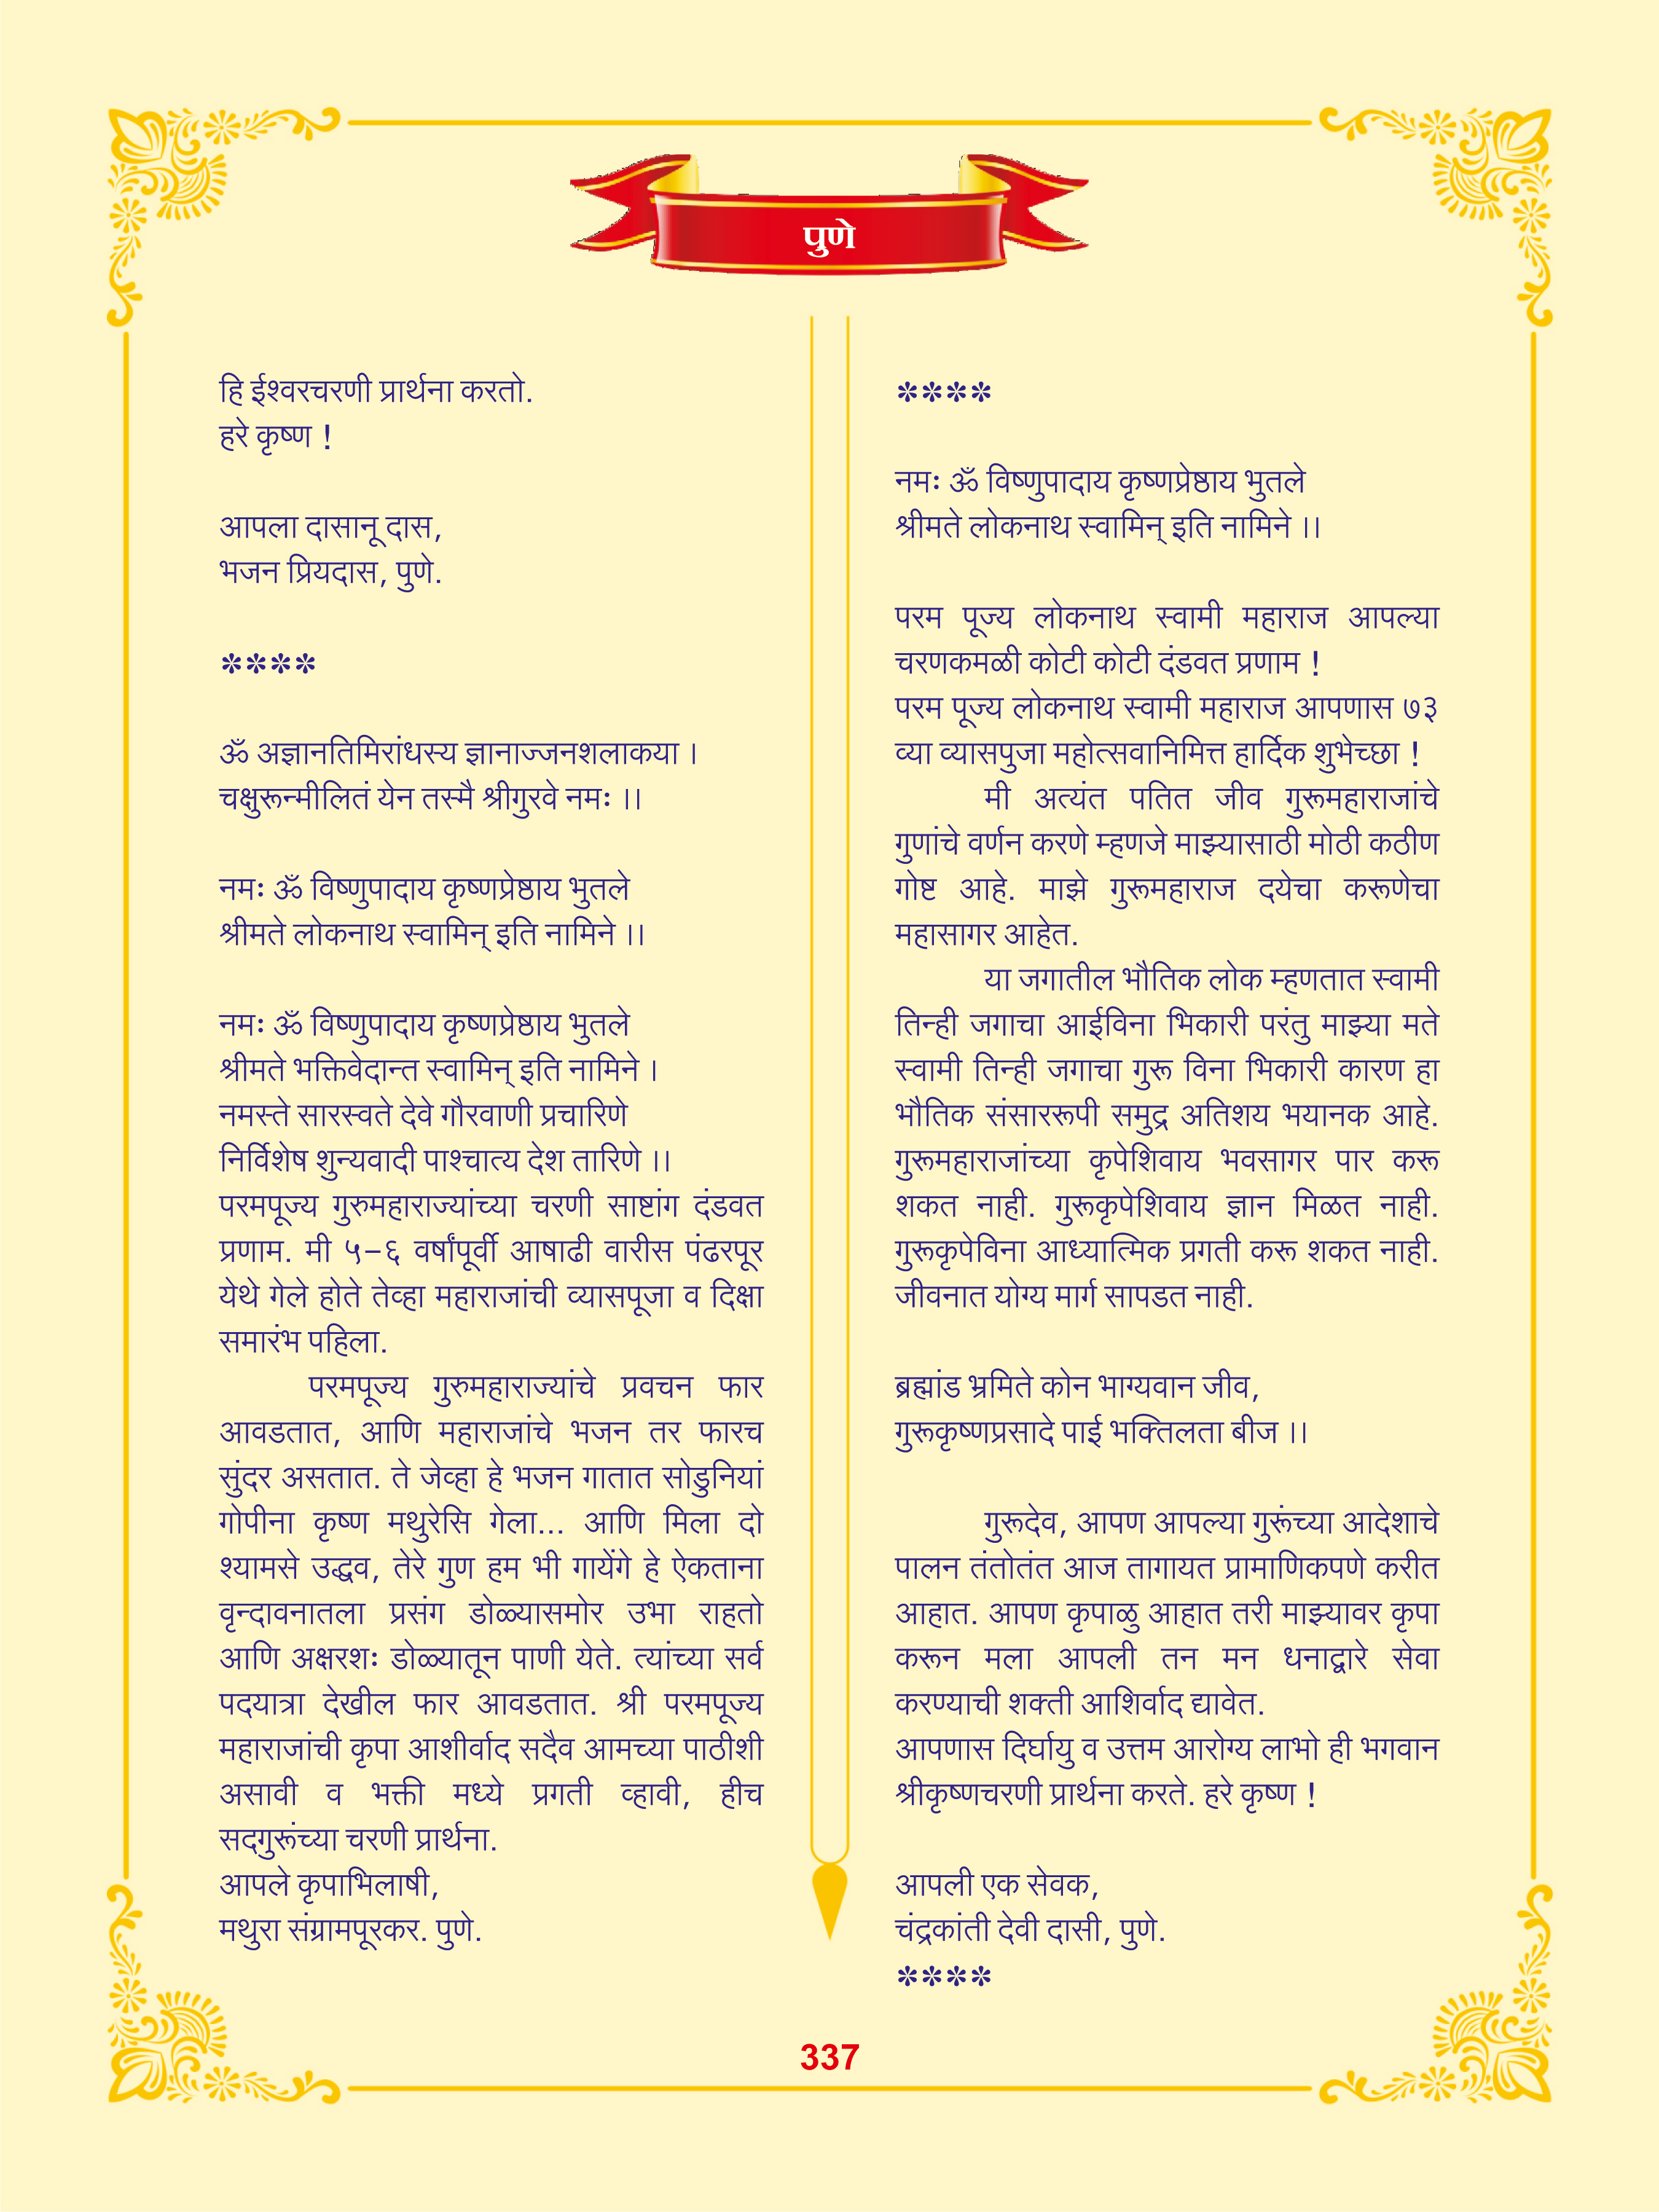 पुणे
हि ईश्वरचरणी प्रार्थना करतो.
हरे कृष्ण !
आपला दासानू दास,
भजन प्रियदास, पुणे.
✽✽✽✽
ॐ अज्ञानतिमिरांधस्य ज्ञानाज्जनशलाकया ।
चक्षुरून्मीलितं येन तस्मै श्रीगुरवे नमः ।।
नमः ॐ विष्णुपादाय कृष्णप्रेष्ठाय भुतले
श्रीमते लोकनाथ स्वामिन् इति नामिने ।।
नमः ॐ विष्णुपादाय कृष्णप्रेष्ठाय भुतले
श्रीमते भक्तिवेदान्त स्वामिन् इति नामिने ।
नमस्ते सारस्वते देवे गौरवाणी प्रचारिणे
निर्विशेष शुन्यवादी पाश्चात्य देश तारिणे ।।
परमपूज्य गुरुमहाराज्यांच्या चरणी साष्टांग दंडवत
प्रणाम. मी ५–६ वर्षांपूर्वी आषाढी वारीस पंढरपूर
येथे गेले होते तेव्हा महाराजांची व्यासपूजा व दिक्षा
समारंभ पहिला.
परमपूज्य गुरुमहाराज्यांचे प्रवचन फार
आवडतात, आणि महाराजांचे भजन तर फारच
सुंदर असतात. ते जेव्हा हे भजन गातात सोडुनियां
गोपीना कृष्ण मथुरेसि गेला... आणि मिला दो
श्यामसे उद्धव, तेरे गुण हम भी गायेंगे हे ऐकताना
वृन्दावनातला प्रसंग डोळ्यासमोर उभा राहतो
आणि अक्षरशः डोळ्यातून पाणी येते. त्यांच्या सर्व
पदयात्रा देखील फार आवडतात. श्री परमपूज्य
महाराजांची कृपा आशीर्वाद सदैव आमच्या पाठीशी
असावी व भक्ती मध्ये प्रगती व्हावी, हीच
सदगुरूंच्या चरणी प्रार्थना.
आपले कृपाभिलाषी,
मथुरा संग्रामपूरकर. पुणे.
✽✽✽✽
नमः ॐ विष्णुपादाय कृष्णप्रेष्ठाय भुतले
श्रीमते लोकनाथ स्वामिन् इति नामिने ।।
परम पूज्य लोकनाथ स्वामी महाराज आपल्या
चरणकमळी कोटी कोटी दंडवत प्रणाम !
परम पूज्य लोकनाथ स्वामी महाराज आपणास ७३
व्या व्यासपुजा महोत्सवानिमित्त हार्दिक शुभेच्छा !
मी अत्यंत पतित जीव गुरूमहाराजांचे
गुणांचे वर्णन करणे म्हणजे माझ्यासाठी मोठी कठीण
गोष्ट आहे. माझे गुरूमहाराज दयेचा करूणेचा
महासागर आहेत.
या जगातील भौतिक लोक म्हणतात स्वामी
तिन्ही जगाचा आईविना भिकारी परंतु माझ्या मते
स्वामी तिन्ही जगाचा गुरू विना भिकारी कारण हा
भौतिक संसाररूपी समुद्र अतिशय भयानक आहे.
गुरूमहाराजांच्या कृपेशिवाय भवसागर पार करू
शकत नाही. गुरूकृपेशिवाय ज्ञान मिळत नाही.
गुरूकृपेविना आध्यात्मिक प्रगती करू शकत नाही.
जीवनात योग्य मार्ग सापडत नाही.
ब्रह्मांड भ्रमिते कोन भाग्यवान जीव,
गुरूकृष्णप्रसादे पाई भक्तिलता बीज ।।
गुरूदेव, आपण आपल्या गुरूंच्या आदेशाचे
पालन तंतोतंत आज तागायत प्रामाणिकपणे करीत
आहात. आपण कृपाळु आहात तरी माझ्यावर कृपा
करून मला आपली तन मन धनाद्वारे सेवा
करण्याची शक्ती आशिर्वाद द्यावेत.
आपणास दिर्घायु व उत्तम आरोग्य लाभो ही भगवान
श्रीकृष्णचरणी प्रार्थना करते. हरे कृष्ण !
आपली एक सेवक,
चंद्रकांती देवी दासी, पुणे.
✽✽✽✽
337